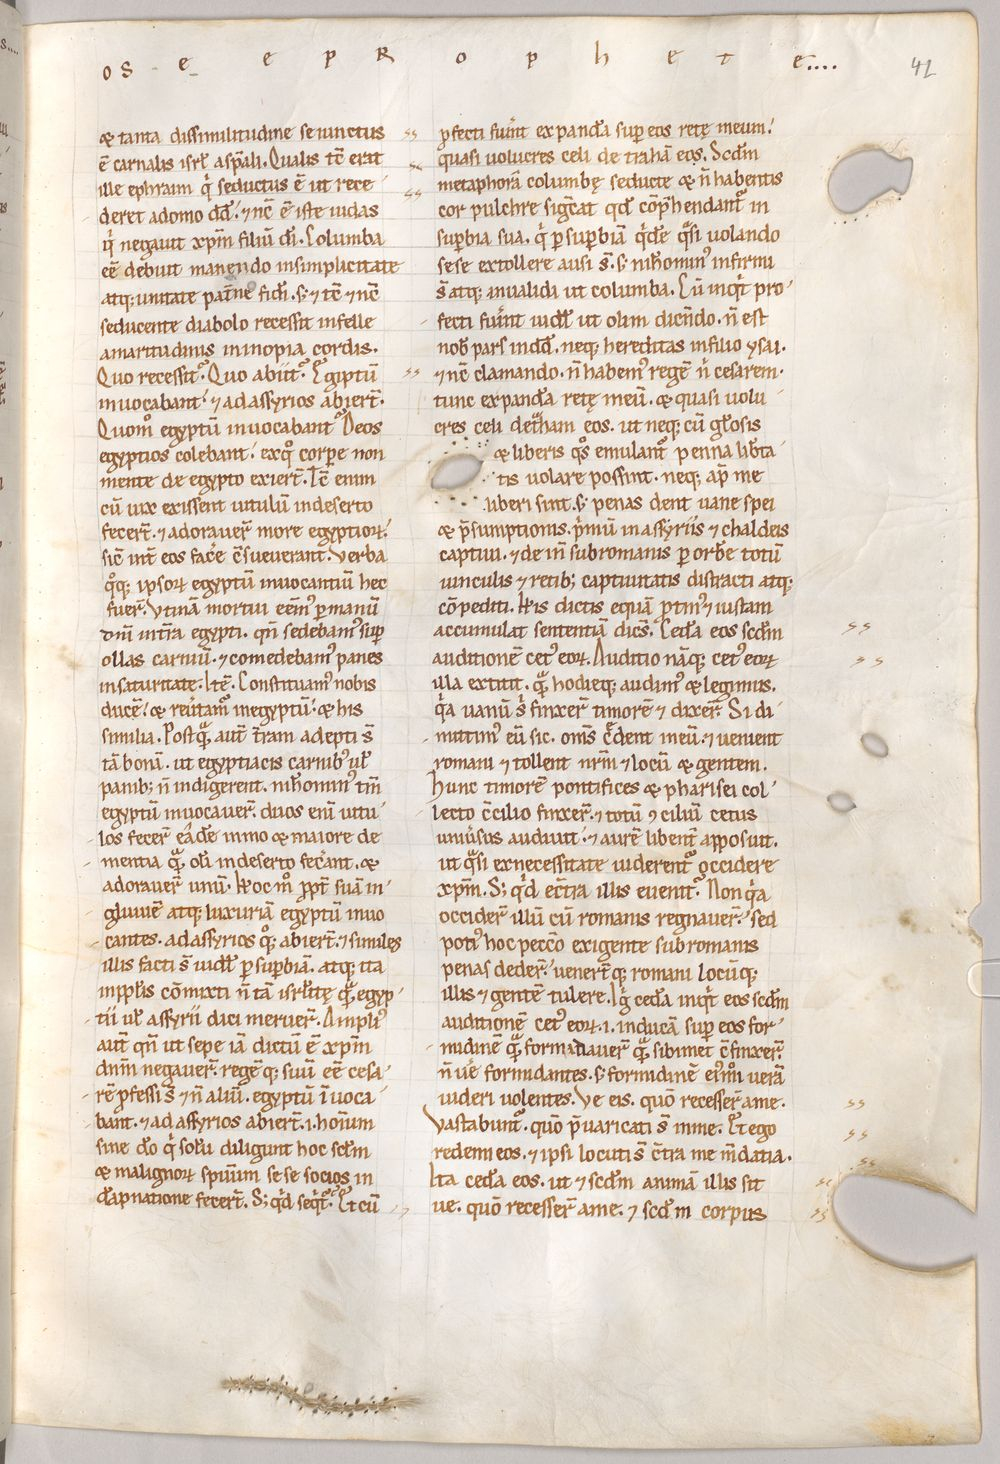 OSEE PROPHETE....
42
& tanta dissimilitudine seiunctus
ē carnalis isrł asp̄ali. Qualis tc̄ erit
ille ephraim q̇ seductus ē ut rece
deret adomo dd̄. ⁊ nc̄ ē iste iudas
q̇ negauit xp̄m filiū dı̄. Columba
eē debuit manendo insimplicitate
atq; unitate pat̄ne fidei. s; ⁊ tc̄ ⁊ nc̄
seducente diabolo recessit infelle
amaritudinis in inopia cordis.
Quo recessit? Quo abiit? Egiptū
inuocabant. ⁊ ad assyrios abiert̄.
Quom̊ egyptū inuocabant? Deos
egyptios colebant. exq̊ corpe non
mente de egypto exiert̄. Tc̄ enim
cū uix exissent uitulū indeserto
fecert̄. ⁊ adorauer̄ more egyptioꝝ.
sic̄ int̄ eos fac̄e c̄sueuerant. Verba
q̊q; ipsoꝝ egyptū inuocantiū hec
fuer̄. Vtinā mortui eēm᷒ p manū
dn̄i int̄ra egypti. qn̄ sedebam᷒ sup
ollas carniū. ⁊ comedebam᷒ panes
insaturitate. Itē. Constituam᷒ nobis
ducē. & reuitam᷒ inegyptū. & his
similia. Postq̄ aut̄ t̄ram adepti s̄
tā bonā. ut egyptiacis carnib᷒ uł
panib; n̄ indigerent. nihomin᷒ tm̄
egyptū inuocauer̄. duos enī uitu
los fecer̄ eādē immo & maiore de
mentia q̄ olı̄ indeserto fecerant. &
adorauer̄ unū. Hoc m̊ ppt̄ suā in
gluuiē atq; luxuriā egyptū inuo
cantes. ad assyrios q̊; abiert̄. ⁊ similes
illis facti s̄ iudı̄ p supbiā. atq; ita
inpp̄lis cōmixti n̄ tā isrłitę q̄ egyp
tii uł assyrii dici meruer̄. Ampli᷒
aut̄ qn̄ ut sepe iā dictū ē xp̄m
dn̄m negauer̄. regē q; suū eē cesa
rē pfessi s̄ ⁊ n̄ aliū. egyptū īuoca
bant. ⁊ ad assyrios abiert̄. i. hoīum
sine do̅ q̇ solū diligunt hoc scłm
& malignoꝝ spirituum sese socios in
dāpnatione fecert̄. S; q̇d seqr̄t? Et cū
pfecti fuīnt expandā sup eos retę meum.
quasi uolucres celi detrahā eos. Scdm̄
metaphorā columbę seducte & n̄ habentis
cor pulchre sigc̄at qđ cōp̄hendant᷒ in
supbia sua. q̇ p supbiā q̇dē q̄si uolando
sese extollere ausi s̄. s; nihomin᷒ infirmi
s̄ atq; inualidi ut columba. Cū inqt̄ pro
fecti fuīnt iudı̄ ut olim dicēndo. n̄ est
nob̄ pars indd̄. neq; hereditas infilio ysai.
⁊ nc̄ clamando. n̄ habem᷒ regē n̄ cesarem.
tunc expandā retę meū. & quasi uolu
cres celi det̄ham eos. ut neq; cū głosis
& liberis q̊s emulant᷒ penna lib̄ta
tis uolare possint. neq; ap̄ me
liberi sint. s; penas dent uane spei
& p̄sumptionis. p̄mū in assyriis ⁊ chaldeis
captiui. ⁊ dein̄ subromanis p orbē totū
uinculis ⁊ retib; captiuitatis distracti atq;
cōpediti. His dictis equā ptin᷒ ⁊ iustam
accumulat sententiā dicēs. Cedā eos scdm̄
auditionē cet᷒ eoꝝ. Auditio nāq; cet᷒ eoꝝ
illa extitit. q̄ hodieq; audim᷒ & legimus.
q̇a uanū s̄ finxer̄ timorē ⁊ dixer̄. Si di
mittim᷒ eū sic. om̄s c̄dent ineū. ⁊ uenient
romani ⁊ tollent nr̄m ⁊ locū & gentem.
Hunc timorē pontifices & pharisei col
lecto c̄cilio finxer̄. ⁊ totū ꝯciliū cetus
uniūsus audiuit. ⁊ aurē libent̄ apposuit.
ut q̄si exnecessitate uiderent᷒ occidere
xp̄m. S; q̇d ec̄tra illis euenit? Non q̇a
occider̄ illū cū romanis regnauer̄. sed
poti᷒ hoc pecc̄o exigente subromanis
penas deder̄. uenert̄q; romani locūq;
illis ⁊ gentē tulere. Ig̊ cedā inqt̄ eos scdm̄
auditionē cet᷒ eoꝝ. i. inducā sup eos for
midinē q̄ formidauer̄ q̄ sibimet c̄finxer̄.
n̄ uē formidantes. s; formidinē ei᷒m̊i uerā
uideri uolentes. Ve eis. quō recesser̄ ame.
Vastabunt᷒. quō p̄uaricati s̄ inme. Et ego
redemi eos. ⁊ ipsi locuti s̄ c̄tra me m̄datia.
Ita cedā eos. ut ⁊ scdm̄ animā illis sit
ue. quō recesser̄ ame. ⁊ scdm̄ corpus